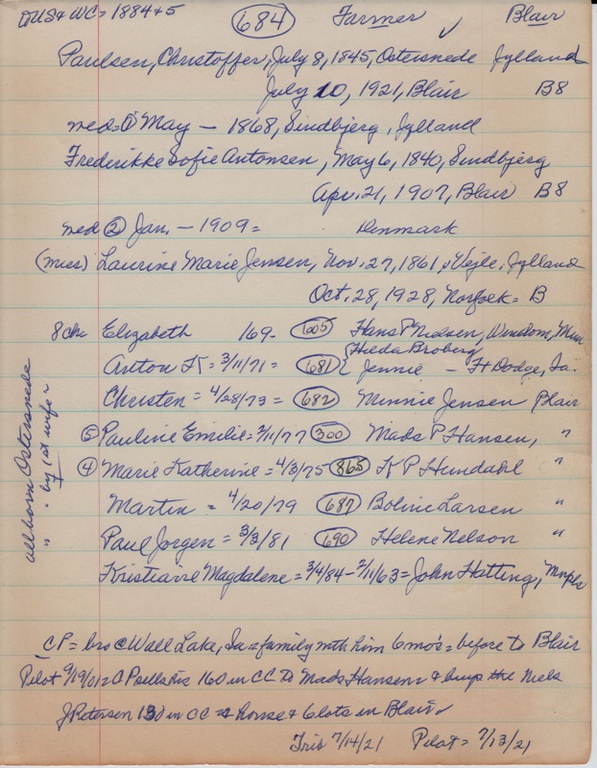 to US & WC = 1884+5 684 Farmer ✓ Blair
Paulsen, Christoffer, July 8, 1845, Ostersnede Jylland
July 10, 1921, Blair B8
med = ① May — 1868, Sindbjerg, Jylland
Frederikke Sofie Antonsen, May 6, 1840, Sindbjerg
Apr. 21, 1907, Blair B8
med ② Jan. — 1909 = Denmark
(miss) Laurine Marie Jensen, Nov. 27, 1861, Vejle, Jylland
Oct. 28, 1928, Norfolk = B
8 ch = Elizabeth 169- 605 Hans P Nielsen, Windom, Minn
Hilda Broberg
Anton K = 3/11/71 = 681 { Jennie — Ft Dodge, Ia.
Christen = 4/28/73 = 682 Minnie Jensen Blair
⑤ Pauline Emilie = 2/11/77 300 Mads P Hansen, "
④ Marie Katherine = 4/3/75 865 K P Hundahl "
Martin = 4/20/79 687 Boline Larsen "
Paul Jorgen = 3/3/81 690 Helene Nelson "
Kristiane Magdalene = 3/4/84 - 2/11/63 = John Hatting, Mnpls
all born Ostersnede
" " by 1st wife
CP = bro @ Wall Lake, Ia = family with him 6 mo's = before to Blair
Pilot 9/19/01 = CP sells his 160 in CC to Mads Hansen & buys the Niels
J Petersen 130 in CC = & house & 6 lots in Blair
Trib 7/14/21 Pilot = 7/13/21